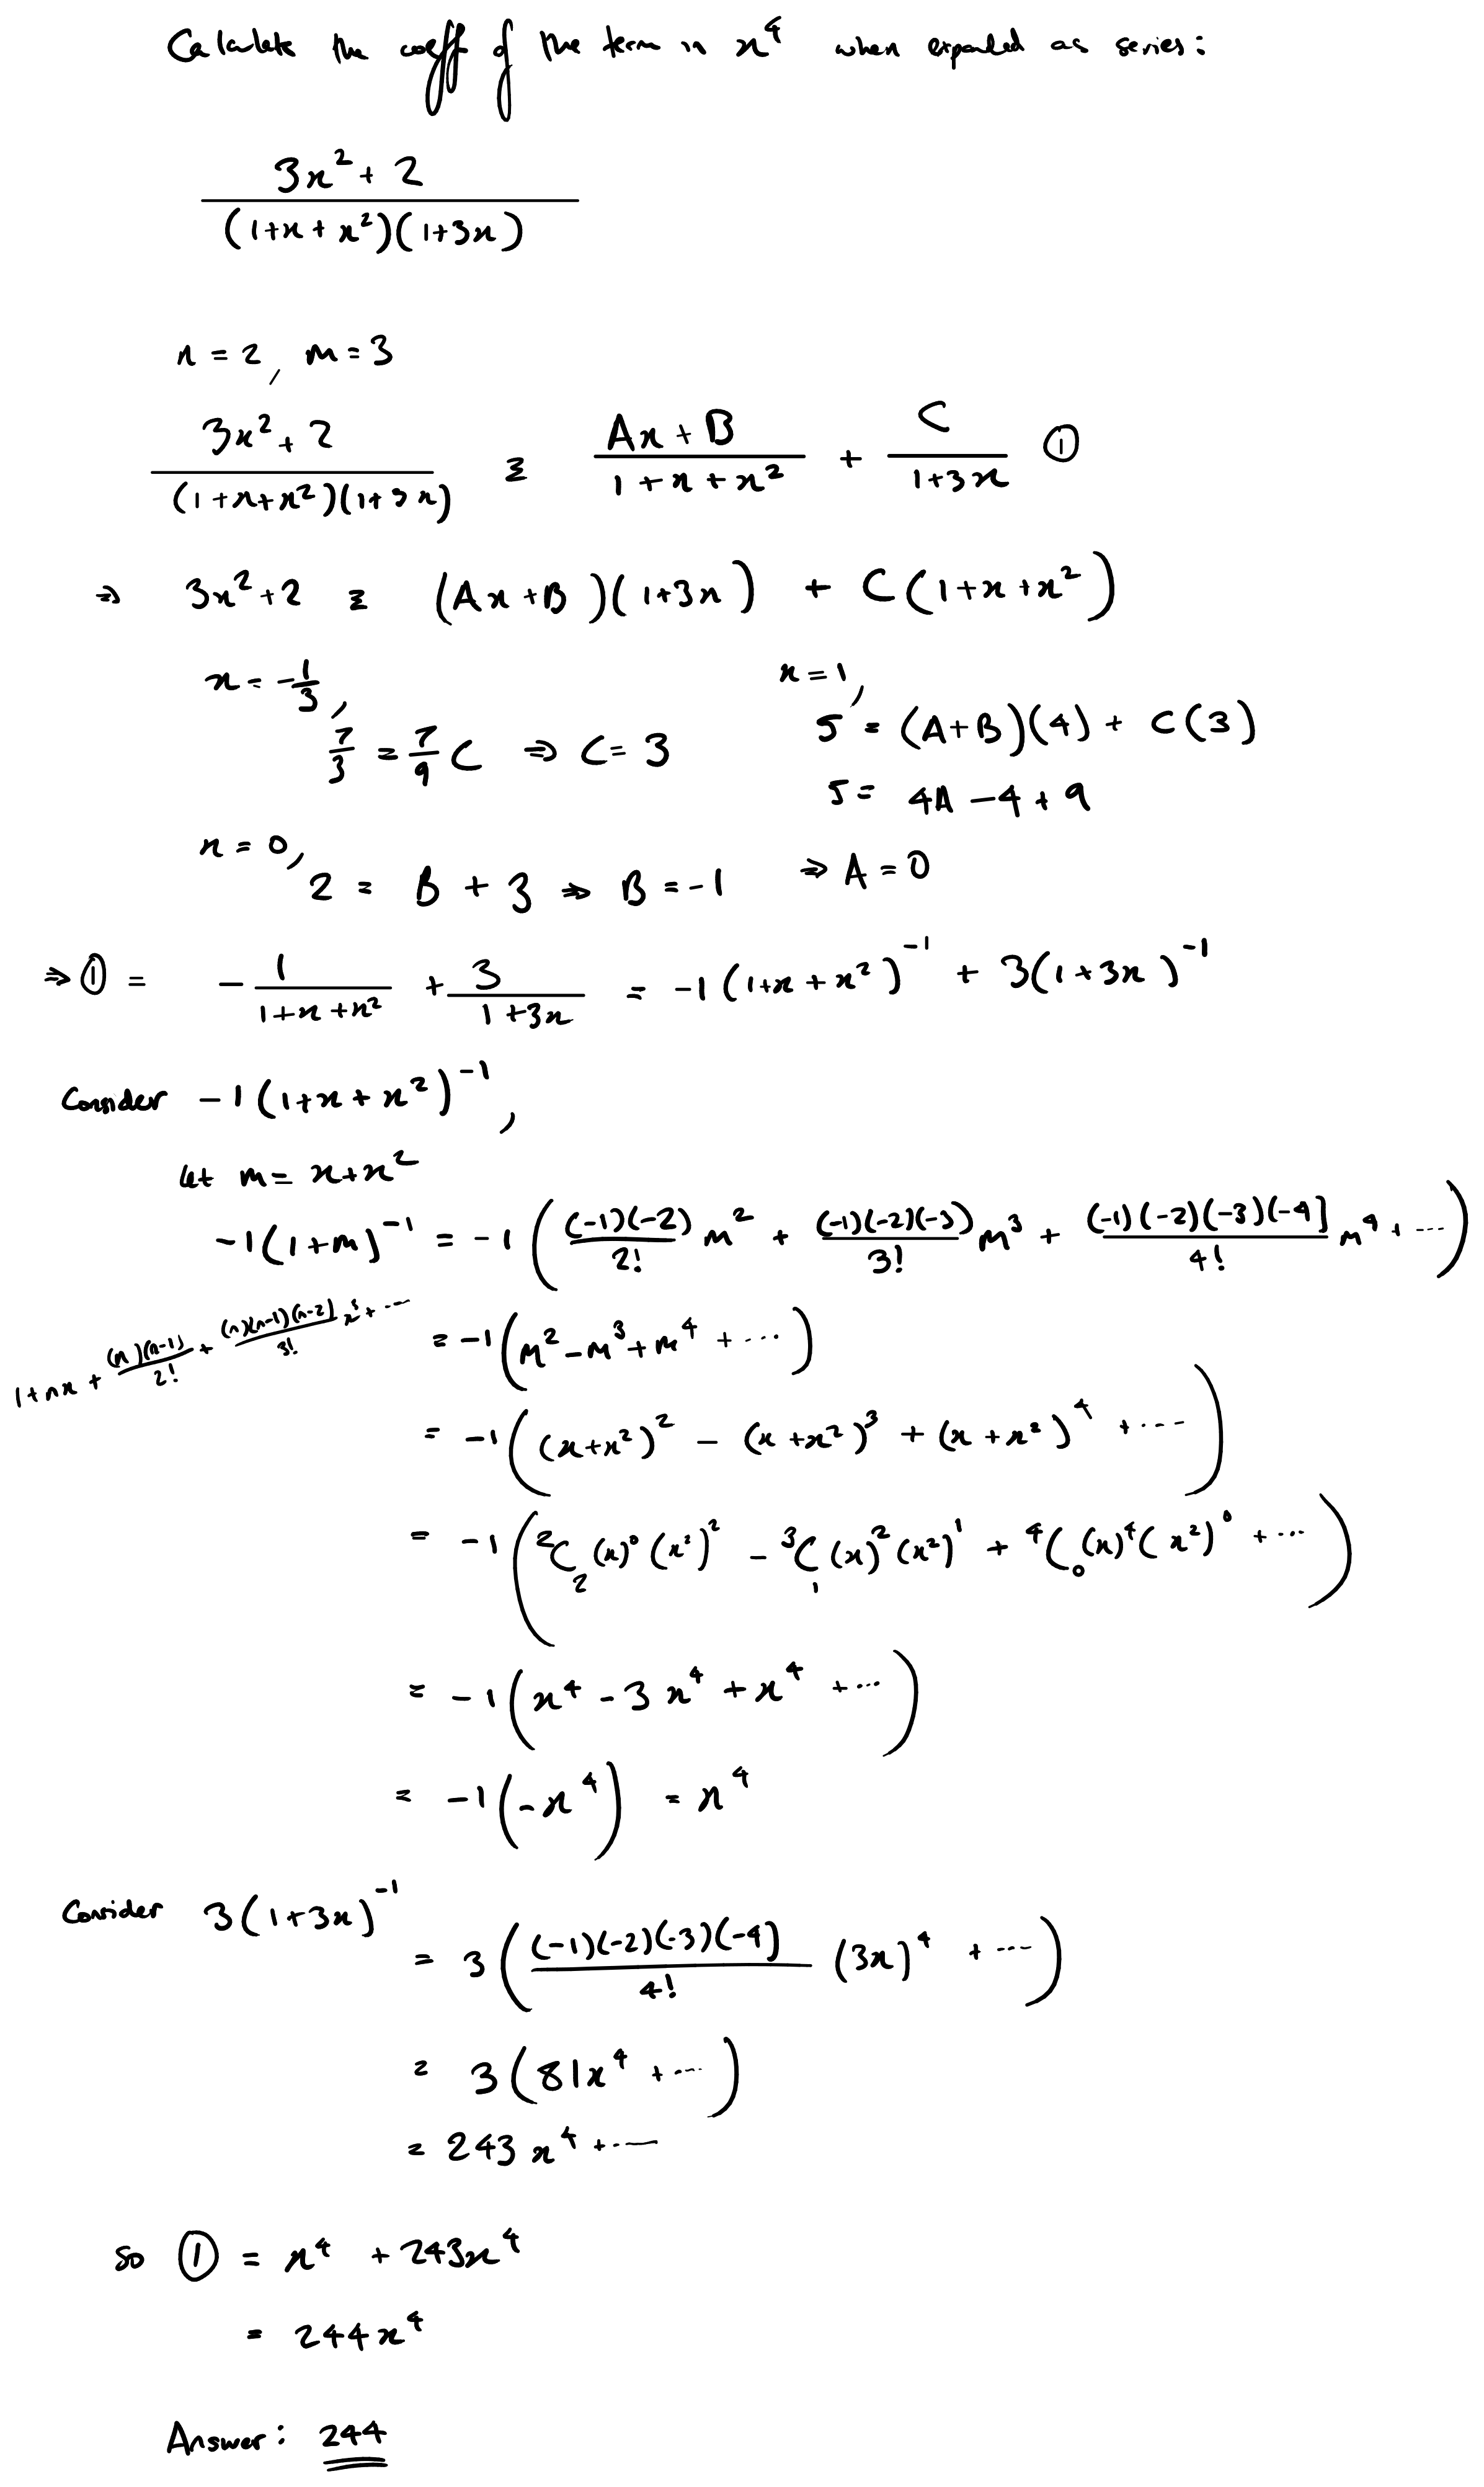 Calculate the coeff of the term in x⁴ when expanded as series:
(3x² + 2) / ((1+x+x²)(1+3x))
n = 2, m = 3
(3x² + 2) / ((1+x+x²)(1+3x)) ≡ (Ax + B) / (1+x+x²) + C / (1+3x) ①
⇒ 3x²+2 ≡ (Ax+B)(1+3x) + C(1+x+x²)
x = -1/3,
7/3 = 7/9 C ⇒ C = 3
x = 0,
2 = B + 3 ⇒ B = -1
x = 1,
5 = (A+B)(4) + C(3)
5 = 4A - 4 + 9
⇒ A = 0
⇒ ① = - 1/(1+x+x²) + 3/(1+3x) = -1(1+x+x²)⁻¹ + 3(1+3x)⁻¹
Consider -1(1+x+x²)⁻¹,
let m = x+x²
-1(1+m)⁻¹ = -1( (-1)(-2)/2! m² + (-1)(-2)(-3)/3! m³ + (-1)(-2)(-3)(-4)/4! m⁴ + ... )
1+nx + (n)(n-1)/2! + (n)(n-1)(n-2)/3! x³ + ...
= -1(m² - m³ + m⁴ + ...)
= -1( (x+x²)² - (x+x²)³ + (x+x²)⁴ + ... )
= -1( ²C₂ (x)⁰(x²)² - ³C₁ (x)²(x²)¹ + ⁴C₀ (x)⁴(x²)⁰ + ... )
= -1( x⁴ - 3x⁴ + x⁴ + ... )
= -1(-x⁴) = x⁴
Consider 3(1+3x)⁻¹
= 3( (-1)(-2)(-3)(-4)/4! (3x)⁴ + ... )
= 3(81x⁴ + ...)
= 243x⁴ + ...
so ① = x⁴ + 243x⁴
= 244x⁴
Answer: 244